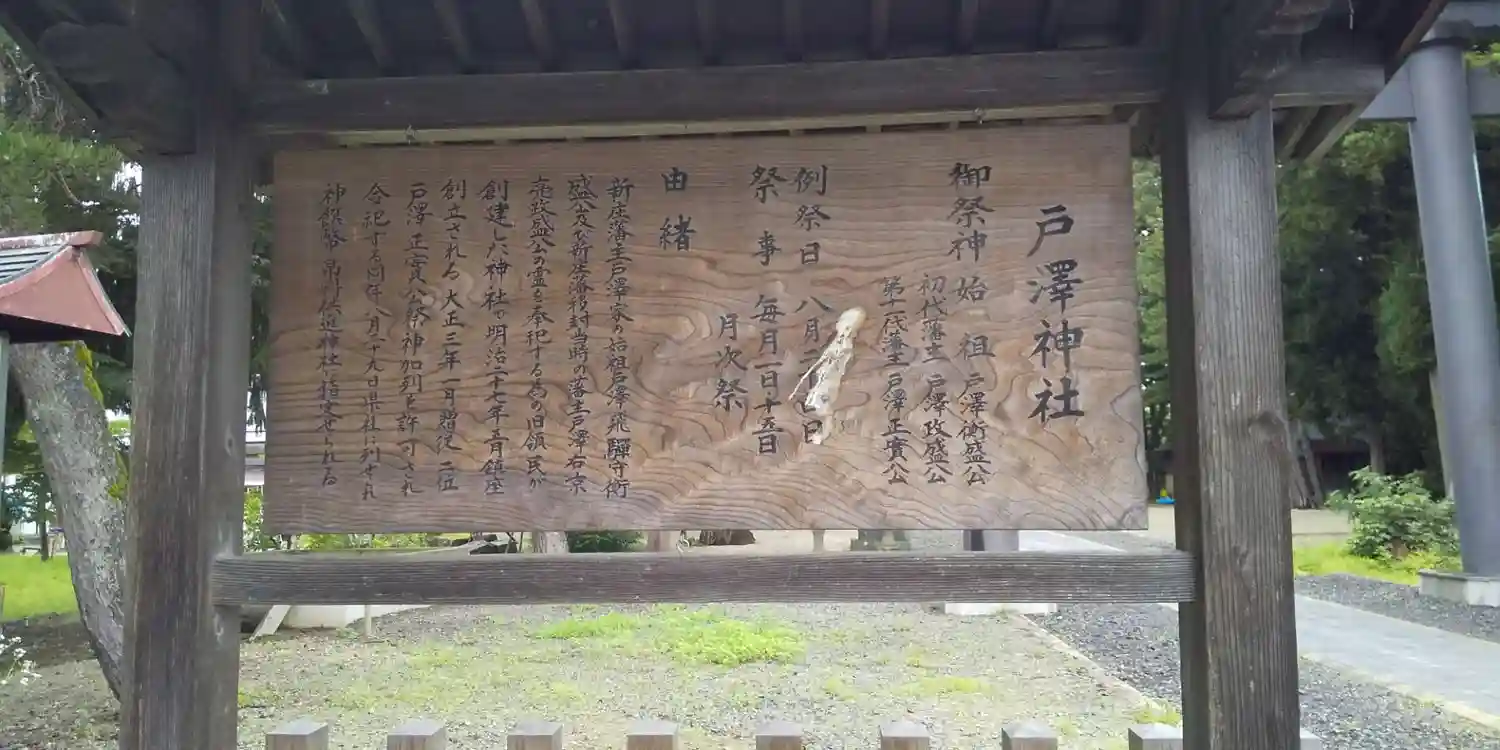 戸澤神社
御祭神 始祖 戸澤衡盛公
初代藩主 戸澤政盛公
第十一代藩主 戸澤正實公
例祭日 八月二 日
祭事 毎月一日十五日
月次祭
由緒
新庄藩主戸澤家の始祖戸澤飛驒守衡
盛公及び新庄藩移封当時の藩主戸澤右京
亮政盛公の霊を奉祀する為の旧領民が
創建した神社で明治二十七年五月鎮座
創立される大正三年一月贈従二位
戸澤正實公祭神加列を許可され
合祀する同年八月十九日県社に列せされ
神饌幣帛料供進神社に指定せられる